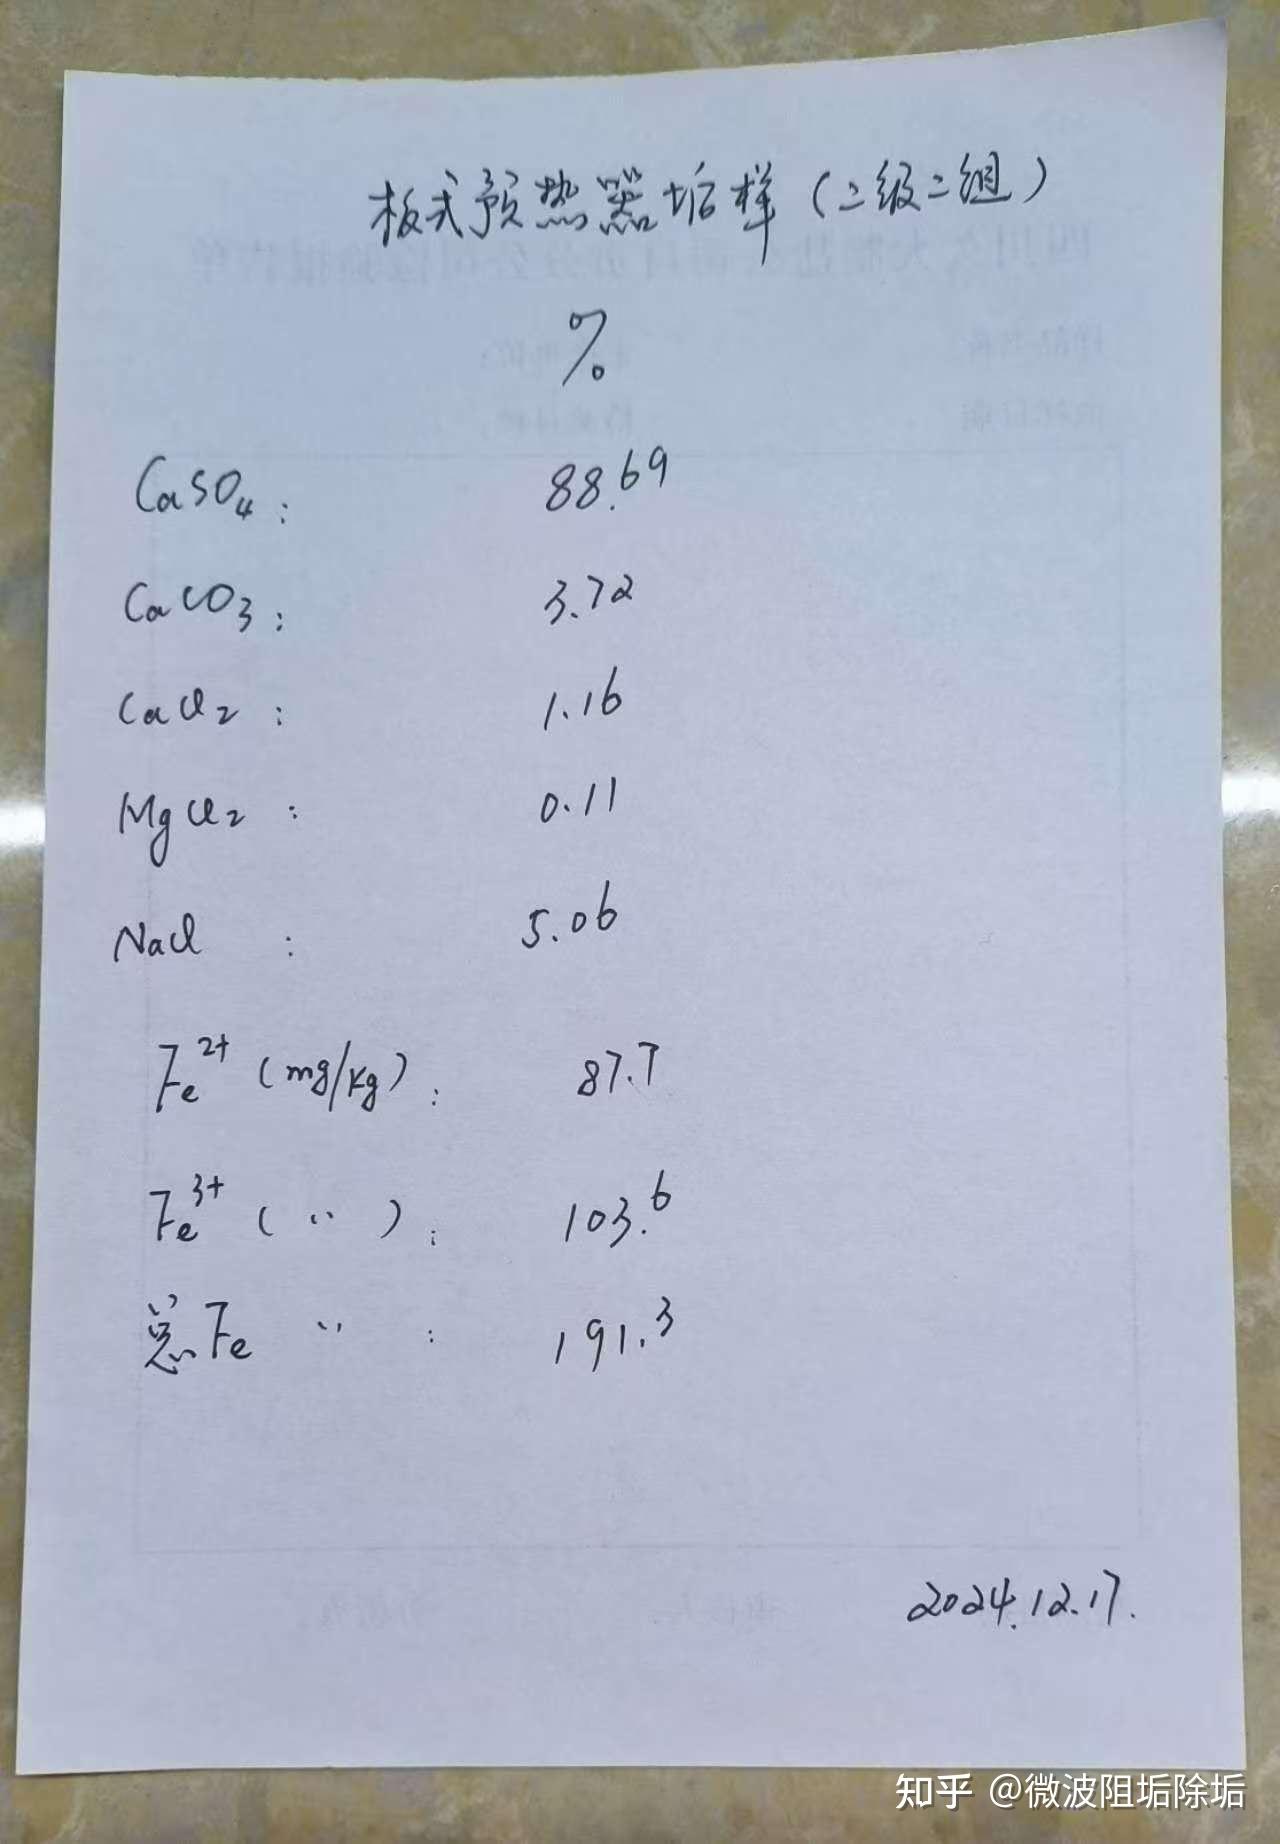 板式预热器垢样（二级二组）
%
CaSO4: 88.69
CaCO3: 3.72
CaCl2: 1.16
MgCl2: 0.11
NaCl: 5.06
Fe2+(mg/kg): 87.7
Fe3+(〃): 103.6
总Fe 〃: 191.3
2024.12.17.
知乎 @微波阻垢除垢